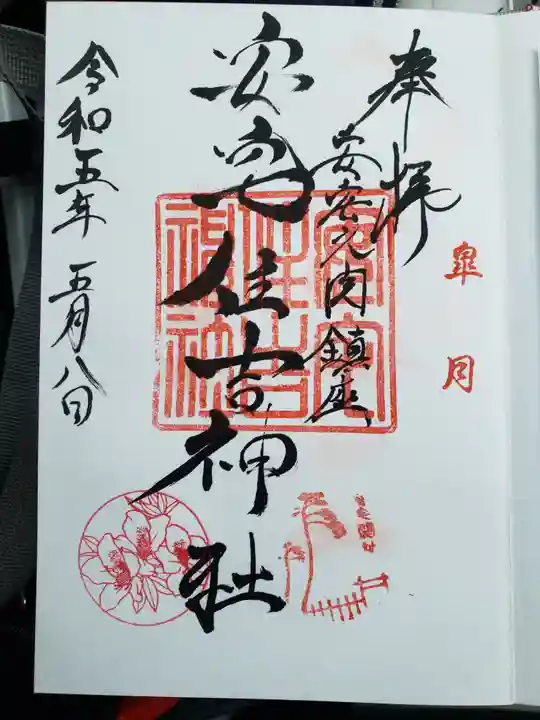 皐月
奉拝
安宅之関鎮座
安宅住吉神社
安宅
住吉
神社
令和五年 五月八日